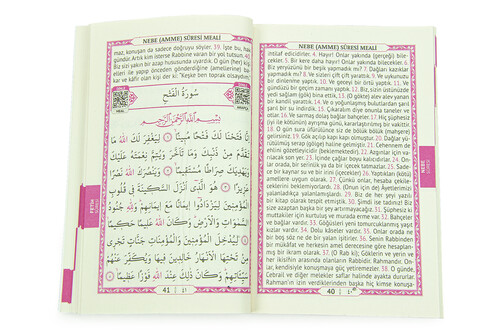 NEBE (AMME) SÛRESİ MEALİ
ihtilaf edicidirler. 4. Hayır! Onlar yakında (gerçeği) bile-
cekler. 5. Bir kere daha hayır! Onlar yakında bilecekler. 6.
Biz yeryüzünü bir beşik yapmadık mı? 7. Dağları kazıklar
yapmadık mı? 8. Ve sizleri çift çift yarattık. 9. Ve uykunuzu
bir dinlenme yaptık. 10. Ve geceyi bir örtü yaptık. 11. Ve
gündüzü bir geçim zamanı yaptık. 12. Biz, sizin üstünüzde
yedi sağlam (göğü) bina ettik. 13. (O gökte) alev alev yanan
bir kandil yarattık. 14. Ve o yoğunlaşmış bulutlardan şarıl
şarıl bir su indirdik. 15. Çıkaralım diye onunla taneler ve
otlar. 16. Ve sarmaş dolaş bahçeler. 17. Hiç şüphesiz
(iyi ile kötünün) ayrışma günü, kararlaştırılmış bir vakittir.
18. O gün sura üfürülünce siz de bölük bölük (mahşere)
gelirsiniz. 19. Gök açılıp kapı kapı olmuştur. 20. Dağlar yü-
rütülmüş serap (gölge) haline gelmiştir. 21. Cehennem de
ehlini gözetleyicidir (beklemektedir). 22. Azgınlar için va-
rılacak son yer. 23. İçinde çağlar boyu kalıcıdırlar. 24. On-
lar orada, bir serinlik ya da bir içecek tatmazlar. 25. Sade-
ce bir kaynar su ve bir irini (içecekler) 26. Yaptıkları (kötü)
amellere uygun olarak. 27. Çünkü onlar, hesaba çekile-
ceklerini beklemiyorlardı. 28. (Onun için de) Âyetlerimizi
yalanladıkça yalanlamışlardı. 29. Biz de her şeyi yazılı
bir kitap olarak tespit etmiştik. 30. Şimdi ise tadınız! Biz
size azaptan başka bir şey artırmayacağız. 31. Şüphesiz ki
muttakiler için kurtuluş ve murada erme var. 32. Bahçeler
ve bağlar vardır. 33. Göğüsleri yeni tomurcuklanmış yaşıt
kızlar vardır. 34. Dolu kâseler vardır. 35. Onlar orada ne
bir boş söz ne de bir yalan işitirler. 36. Senin Rabbinden
bir mükâfat ve herkesin amel derecesine göre hesaplan-
mış bir ikram olarak. 37. (O Rab ki); Göklerin ve yerin ve
her ikisinin arasındakilerin Rabbidir. Rahmandır. On-
lar, kendisiyle konuşmaya güç yetiremezler. 38. O günde,
Cebrail ve diğer melekler saflar halinde ayakta dururlar.
Rahman'ın izin verdiklerinden başka hiç kimse konuşa-
40 ٤٠
NEBE SÛRESİ
NEBE (AMME) SÛRESİ MEALİ
maz, konuşan da sadece doğruyu söyler. 39. İşte bu, hak
gündür. Artık kim isterse Rabbine varan bir yol tutsun. 40.
Biz sizi yakın bir azap hususunda uyardık. O gün (her) kişi
elleri ile yapıp önceden gönderdiğine (amellerine) ba-
kar ve kâfir olan kişi der ki: "Keşke ben toprak olsaydım!"
سُورَةُ الْفَتْحِ
بِسْمِ اللّٰهِ الرَّحْمٰنِ الرَّحِيمِ
اِنَّا فَتَحْنَا لَكَ فَتْحًا مُبِينًا ۝ لِيَغْفِرَ لَكَ اللّٰهُ مَا
تَقَدَّمَ مِنْ ذَنْبِكَ وَمَا تَاَخَّرَ وَيُتِمَّ نِعْمَتَهُ عَلَيْكَ
وَيَهْدِيَكَ صِرَاطًا مُسْتَقِيمًا ۝ وَيَنْصُرَكَ اللّٰهُ نَصْرًا
عَزِيزًا ۝ هُوَ الَّذِى اَنْزَلَ السَّكِينَةَ فِى قُلُوبِ
الْمُؤْمِنِينَ لِيَزْدَادُوا اِيمَانًا مَعَ اِيمَانِهِمْ وَلِلّٰهِ جُنُودُ
السَّمٰوَاتِ وَالْاَرْضِ وَكَانَ اللّٰهُ عَلِيمًا حَكِيمًا ۝
لِيُدْخِلَ الْمُؤْمِنِينَ وَالْمُؤْمِنَاتِ جَنَّاتٍ تَجْرِى
مِنْ تَحْتِهَا الْاَنْهَارُ خَالِدِينَ فِيهَا وَيُكَفِّرَ عَنْهُمْ
سَيِّـَٔاتِهِمْ وَكَانَ ذٰلِكَ عِنْدَ اللّٰهِ فَوْزًا عَظِيمًا ۝
41 ٤١
FETİH